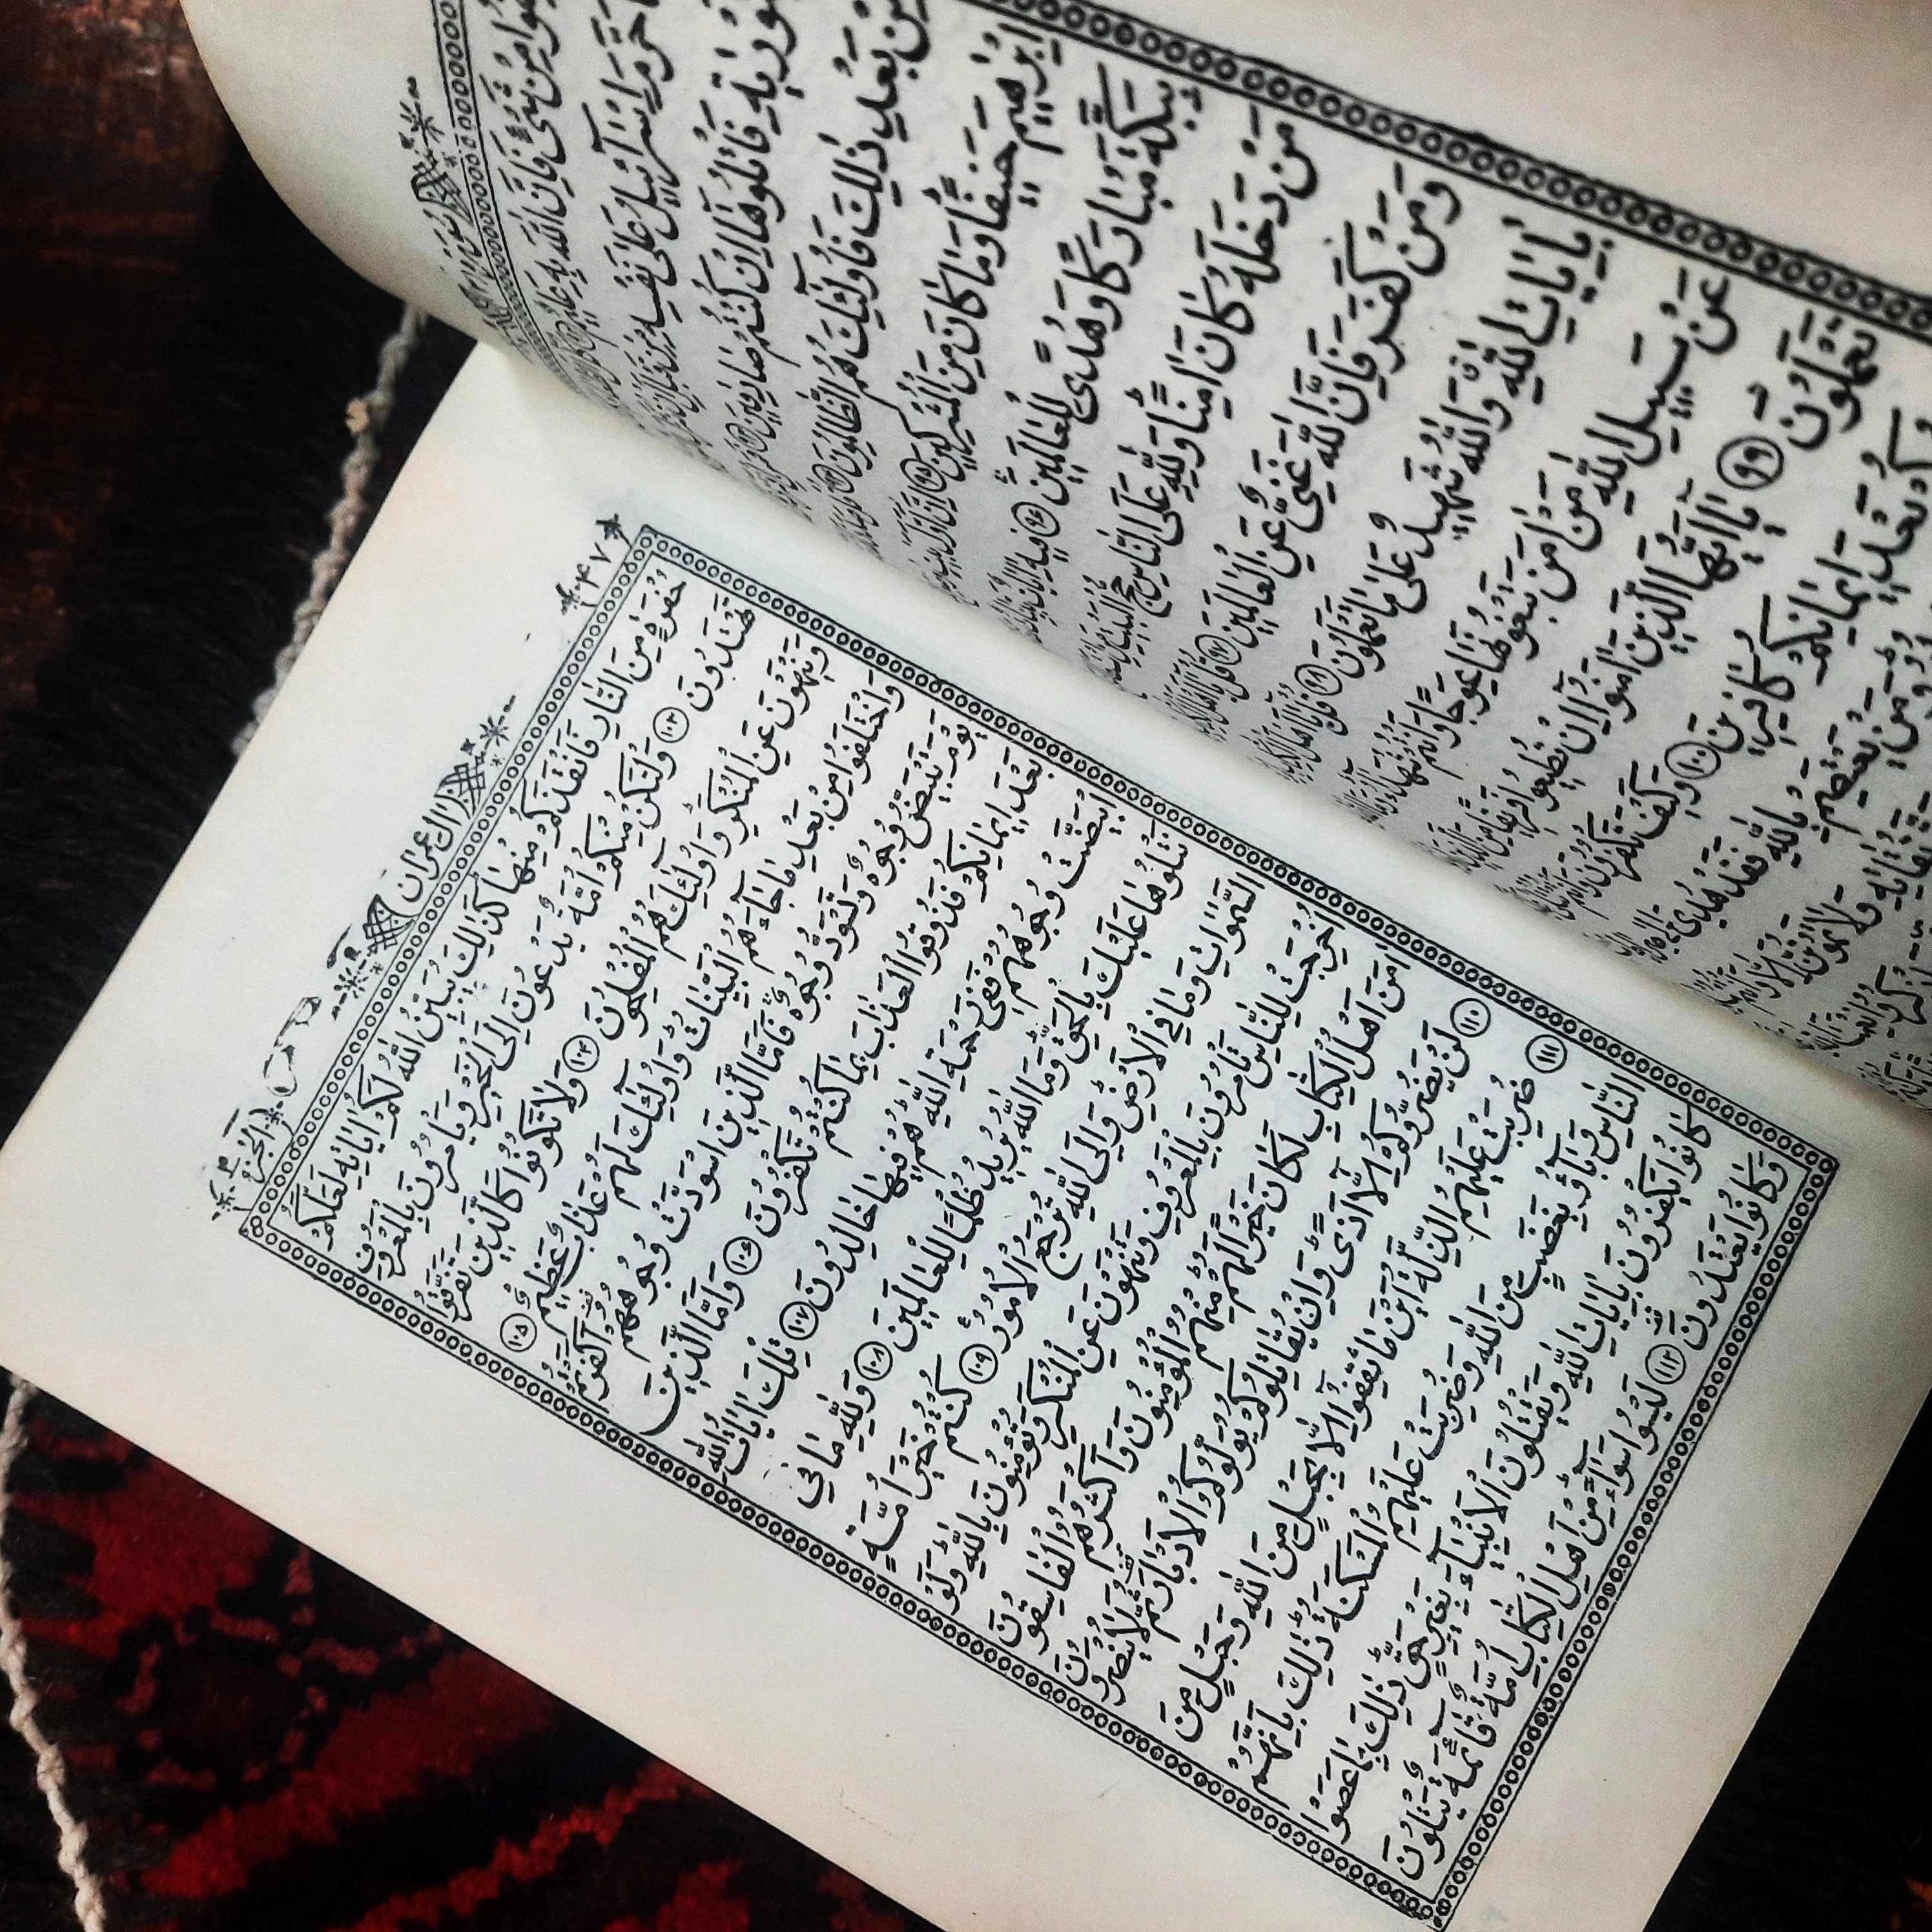 مِنْ شَيْءٍ فَاِنَّ اللّٰهَ بِهِ عَلِيمٌ
حَرَّمَ اِسْرَآئِيلُ عَلٰى نَفْسِهِ مِنْ قَبْلِ
فَاتْلُوهَا اِنْ كُنْتُمْ صَادِقِينَ ٩٣
مِنْ بَعْدِ ذٰلِكَ فَاُولٰٓئِكَ هُمُ الظَّالِمُونَ ٩٤
اِبْرٰهِيمَ حَنِيفًا وَمَا كَانَ مِنَ الْمُشْرِكِينَ ٩٥
بِبَكَّةَ مُبَارَكًا وَهُدًى لِلْعَالَمِينَ ٩٦ فِيهِ
مَنْ دَخَلَهُ كَانَ اٰمِنًا وَلِلّٰهِ عَلَى النَّاسِ حِجُّ الْبَيْتِ
وَمَنْ كَفَرَ فَاِنَّ اللّٰهَ غَنِيٌّ عَنِ الْعَالَمِينَ ٩٧ قُلْ
بِاٰيَاتِ اللّٰهِ وَاللّٰهُ شَهِيدٌ عَلٰى مَا تَعْمَلُونَ ٩٨ قُلْ
عَنْ سَبِيلِ اللّٰهِ مَنْ اٰمَنَ تَبْغُونَهَا عِوَجًا وَاَنْتُمْ
تَعْمَلُونَ ٩٩ يَا اَيُّهَا الَّذِينَ اٰمَنُوا اِنْ تُطِيعُوا فَرِيقًا مِنَ
بَعْدَ اِيمَانِكُمْ كَافِرِينَ ١٠٠ وَكَيْفَ تَكْفُرُونَ
وَمَنْ يَعْتَصِمْ بِاللّٰهِ فَقَدْ هُدِيَ
تُقَاتِهِ وَلَا تَمُوتُنَّ اِلَّا وَاَنْتُمْ
٤٧ اٰلِ عِمْرٰن الْجُزْءُ ٤
حُفْرَةٍ مِنَ النَّارِ فَاَنْقَذَكُمْ مِنْهَا كَذٰلِكَ يُبَيِّنُ اللّٰهُ لَكُمْ اٰيَاتِهِ لَعَلَّكُمْ
تَهْتَدُونَ ١٠٣ وَلْتَكُنْ مِنْكُمْ اُمَّةٌ يَدْعُونَ اِلَى الْخَيْرِ وَيَأْمُرُونَ بِالْمَعْرُوفِ
وَيَنْهَوْنَ عَنِ الْمُنْكَرِ وَاُولٰٓئِكَ هُمُ الْمُفْلِحُونَ ١٠٤ وَلَا تَكُونُوا كَالَّذِينَ تَفَرَّقُوا
وَاخْتَلَفُوا مِنْ بَعْدِ مَا جَآءَهُمُ الْبَيِّنَاتُ وَاُولٰٓئِكَ لَهُمْ عَذَابٌ عَظِيمٌ ١٠٥
يَوْمَ تَبْيَضُّ وُجُوهٌ وَتَسْوَدُّ وُجُوهٌ فَاَمَّا الَّذِينَ اسْوَدَّتْ وُجُوهُهُمْ اَكَفَرْتُمْ
بَعْدَ اِيمَانِكُمْ فَذُوقُوا الْعَذَابَ بِمَا كُنْتُمْ تَكْفُرُونَ ١٠٦ وَاَمَّا الَّذِينَ
ابْيَضَّتْ وُجُوهُهُمْ فَفِي رَحْمَةِ اللّٰهِ هُمْ فِيهَا خَالِدُونَ ١٠٧ تِلْكَ اٰيَاتُ اللّٰهِ
نَتْلُوهَا عَلَيْكَ بِالْحَقِّ وَمَا اللّٰهُ يُرِيدُ ظُلْمًا لِلْعَالَمِينَ ١٠٨ وَلِلّٰهِ مَا فِي
السَّمٰوَاتِ وَمَا فِي الْاَرْضِ وَاِلَى اللّٰهِ تُرْجَعُ الْاُمُورُ ١٠٩ كُنْتُمْ خَيْرَ اُمَّةٍ
اُخْرِجَتْ لِلنَّاسِ تَأْمُرُونَ بِالْمَعْرُوفِ وَتَنْهَوْنَ عَنِ الْمُنْكَرِ وَتُؤْمِنُونَ بِاللّٰهِ وَلَوْ
اٰمَنَ اَهْلُ الْكِتَابِ لَكَانَ خَيْرًا لَهُمْ مِنْهُمُ الْمُؤْمِنُونَ وَاَكْثَرُهُمُ الْفَاسِقُونَ
١١٠ لَنْ يَضُرُّوكُمْ اِلَّا اَذًى وَاِنْ يُقَاتِلُوكُمْ يُوَلُّوكُمُ الْاَدْبَارَ ثُمَّ لَا يُنْصَرُونَ
١١١ ضُرِبَتْ عَلَيْهِمُ الذِّلَّةُ اَيْنَ مَا ثُقِفُوا اِلَّا بِحَبْلٍ مِنَ اللّٰهِ وَحَبْلٍ مِنَ
النَّاسِ وَبَآؤُ بِغَضَبٍ مِنَ اللّٰهِ وَضُرِبَتْ عَلَيْهِمُ الْمَسْكَنَةُ ذٰلِكَ بِاَنَّهُمْ
كَانُوا يَكْفُرُونَ بِاٰيَاتِ اللّٰهِ وَيَقْتُلُونَ الْاَنْبِيَآءَ بِغَيْرِ حَقٍّ ذٰلِكَ بِمَا عَصَوْا
وَكَانُوا يَعْتَدُونَ ١١٢ لَيْسُوا سَوَآءً مِنْ اَهْلِ الْكِتَابِ اُمَّةٌ قَآئِمَةٌ يَتْلُونَ